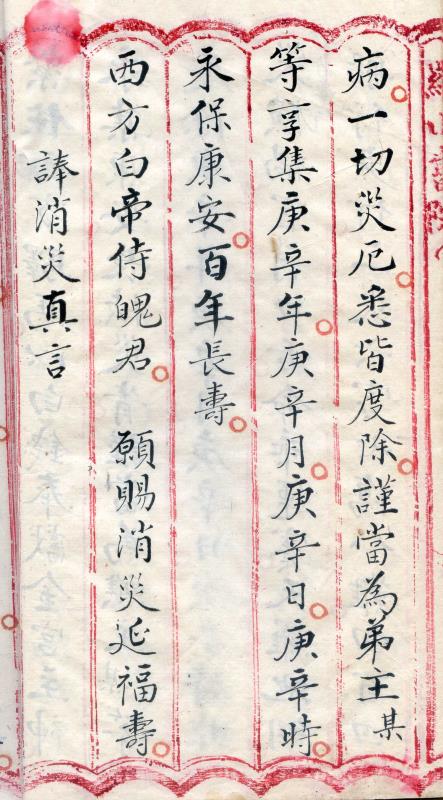 病一切災厄悉皆度除謹當為弟主某
等享集庚辛年庚辛月庚辛日庚辛時
永保康安百年長壽
西方白帝侍魄君 願賜消災延福壽
諱消災真言